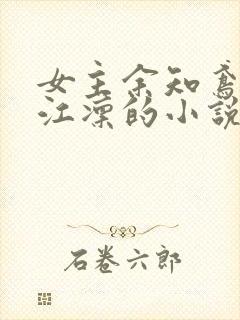 女主余知鸢
江凛的小说
石卷六郎